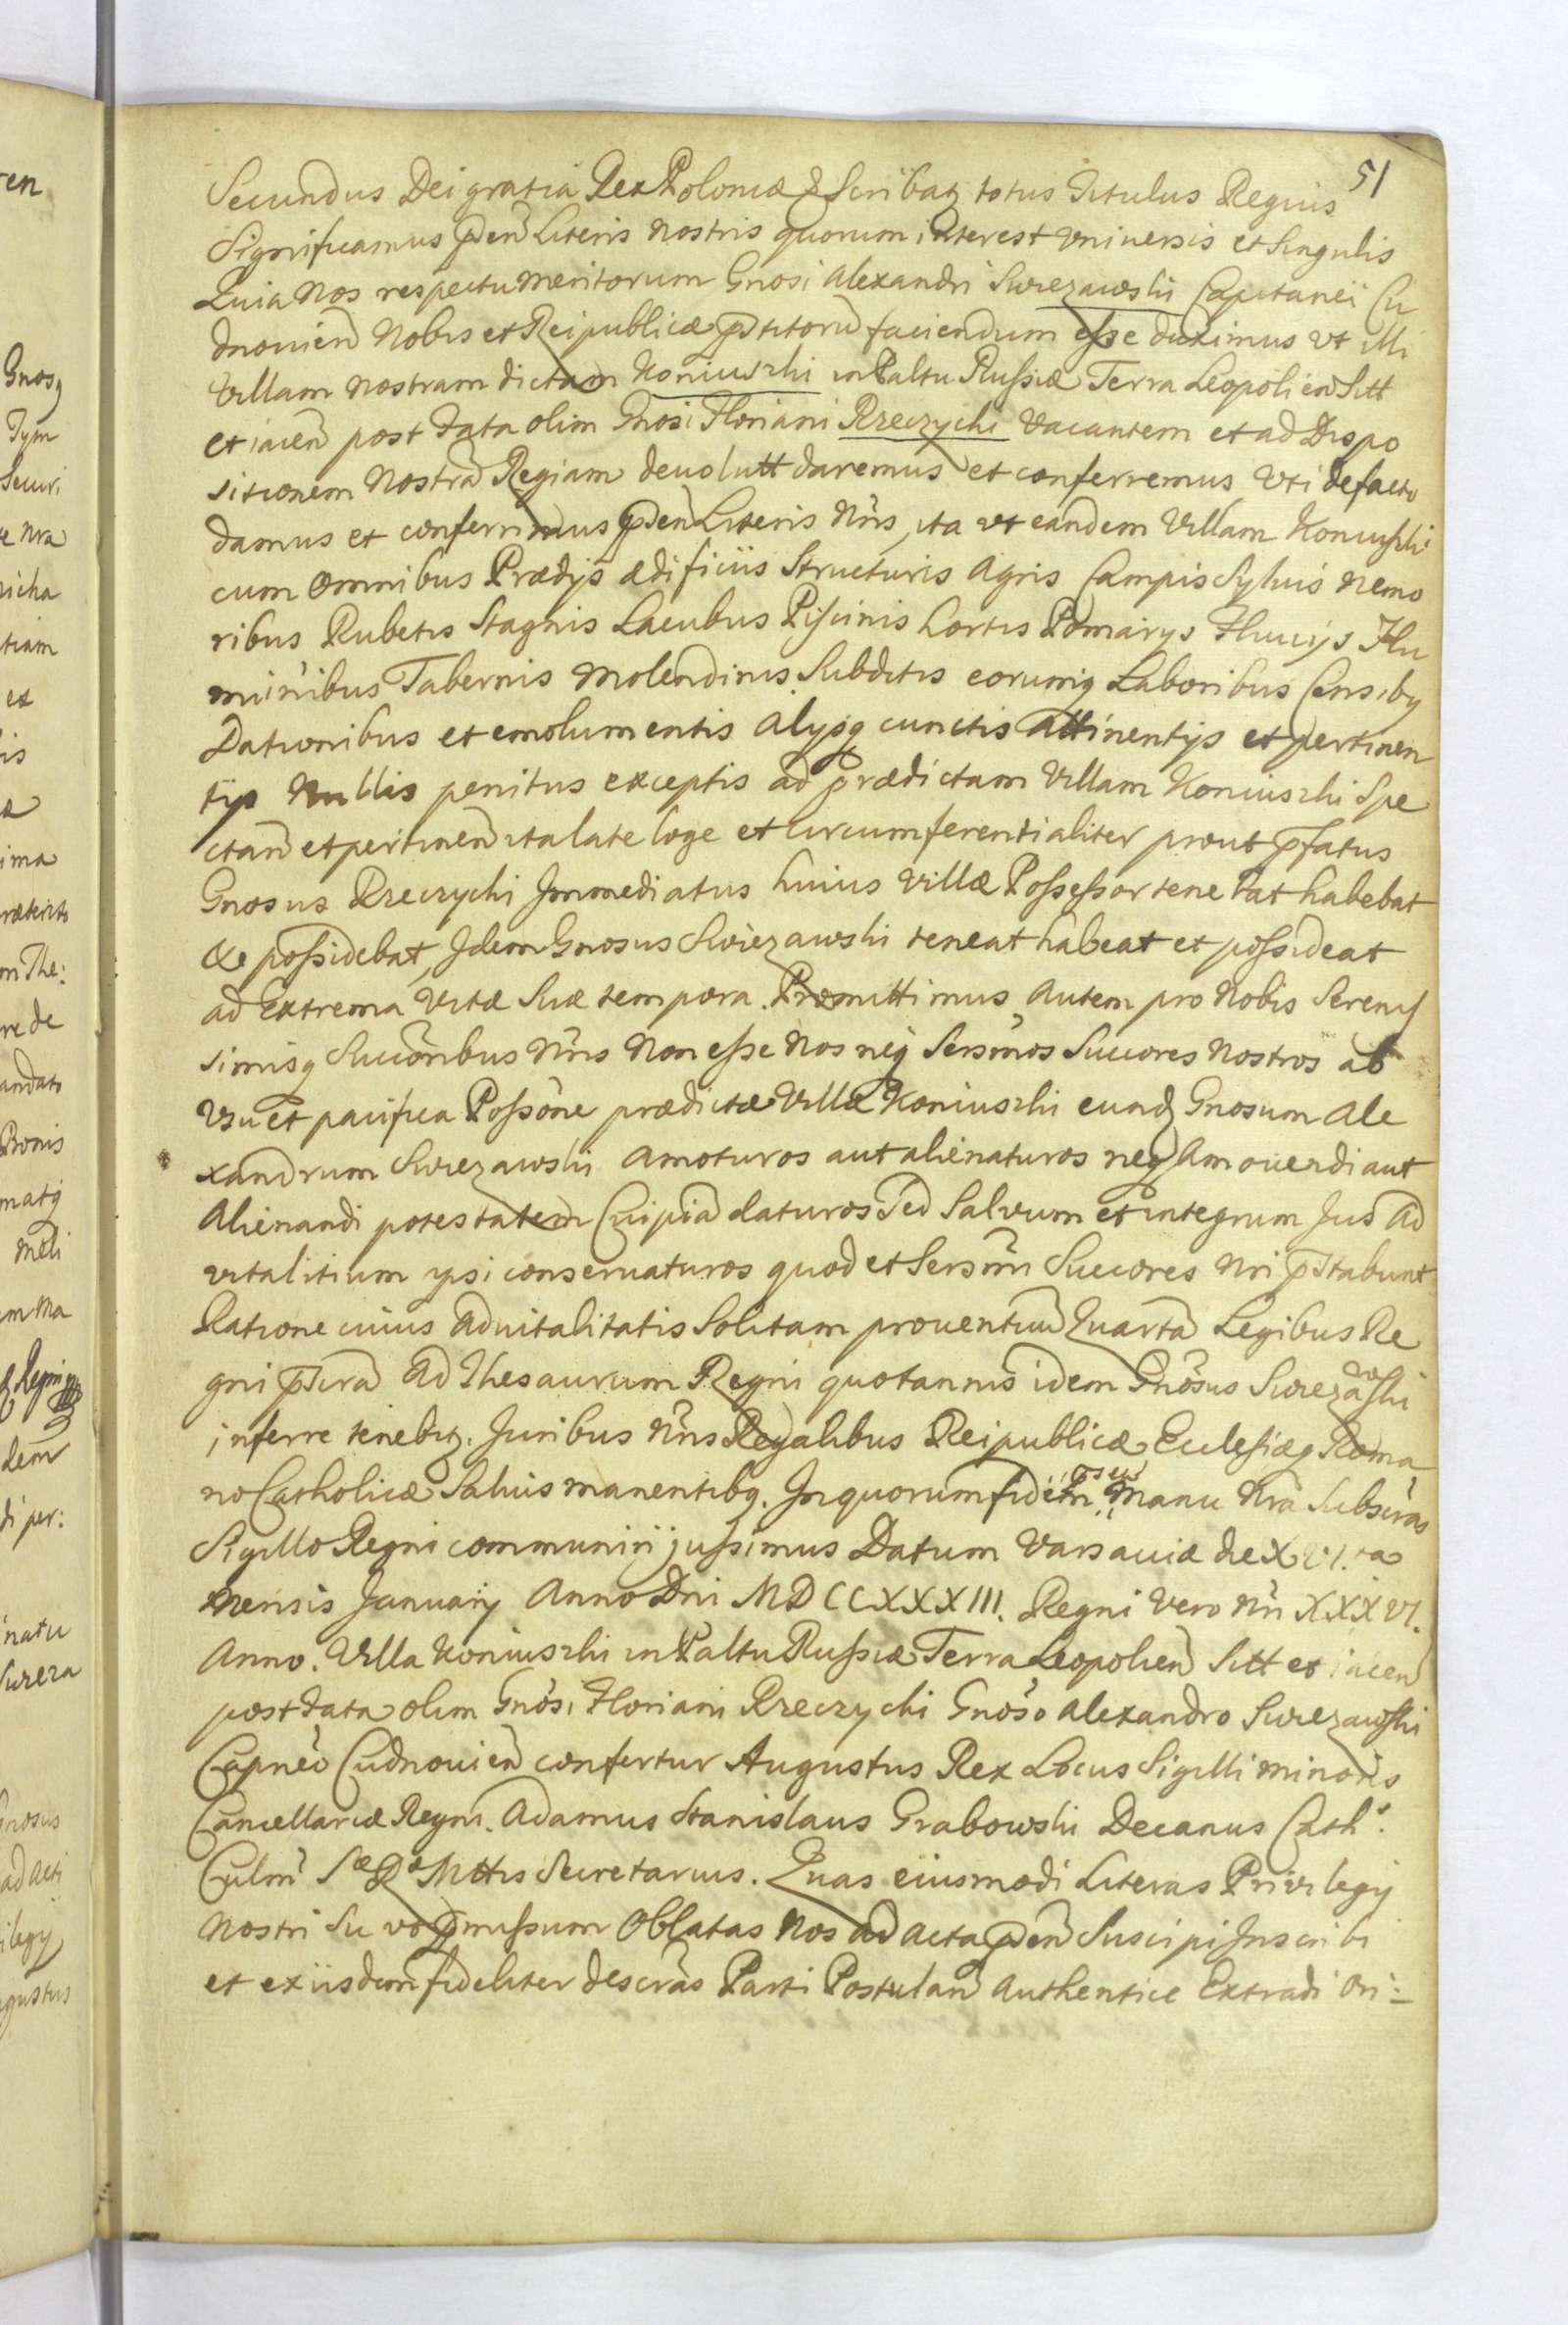 51
Secundus Dei gratia Rex Poloniæ & Scribatz totus Titulus Regius
Significamus pñen Literis Nostris quorum interest universis et singulis
Quia Nos respectu meritorum Gnosi Alexandri Swiezawski Capitanei Cu
dnovien Nobis et Reipublicæ pstitorũ faciendum esse duximus ut illi
Villam nostram dictam Koniuszki in Paltu Russiæ Terra Leopolien Sitt
et iacen post fata olim Gnosi Floriani Rzeczychi Vacantem et ad Dispo
sitionem Nostrã Regiam devolutt daremus et conferremus Uti de facto
damus et conferrimus pñen Literis Nris, ita ut eandem Villam Koniuszki
cum omnibus Prædijs ædificiis Structuris Agris Campis Sylvis Nemo
ribus Rubetis Stagnis Lacubus Piscinis hortis Pomarijs Fluvijs Flu
minibus Tabernis Molendinis Subditis eorumq Laboribus Censibq
Dationibus et emolumentis Alijsq cunctis Attinentijs et pertinen
tijs Nullis penitus exceptis ad prædictam Villam Koniuszki Spe
ctan et pertinen ita late loge et circumferentialiter prout pfatus
Gnosus Rzeczychi Immediatus huius Villæ Possessor tenebat habebat
& possidebat, Idem Gnosus Swiezawski teneat habeat et possideat
ad Extrema Vitæ Suæ tempora. Promittimus Autem pro Nobis Serenis
simisq Succoribus Nris Non esse Nos neq Sersmos Succores Nostros ab
Usu et pacifica Possone prædictæ Villæ Koniuszki eundz Gnosum Ale
xandrum Swiezawski Amoturos aut alienaturos neq Amovendi aut
Alienandi potestatem Cuipiã daturos Sed Salvum et integrum Jus Ad
vitalitium ipsi conservaturos quod et Sersmi Succores Nri pstabunt
Ratione cuius Advitalitatis Solitam proventuũ Quartã Legibus Re
gni pscra Ad Thesaurum Regni quotannis idem Gnosus Swiezawski
inferre tenebitz. Juribus Nris Regalibus Reipublicæ Ecclesiæq Roma
no Catholicæ Salvis manentibq. In quorum fidem Manu Nra Subscras
Sigillo Regni communiri jussimus Datum Varsaviæ die XVI.ta
Mensis Januarij Anno Dni MDCCXXXIII. Regni Vero Nri XXXVI.
Anno. Villa Koniuszki in Paltu Russiæ Terra Leopolien Sitt et iacen
post fata olim Gnosi Floriani Rzeczychi Gnoso Alexandro Swiezawski
Capneo Cudnovien confertur Augustus Rex Locus Sigilli minoris
Cancellariæ Regni. Adamus Stanislaus Grabowski Decanus Cath:
Culm Sæ Ræ Mttis Secretarius. Quas eiusmodi Literas Privilegij
Nostri Su vo pmissum Oblatas Nos ad Acta pñen Suscipi Inscribi
et ex iisdem fideliter descras Parti Postulan Authentice Extradi Ori: